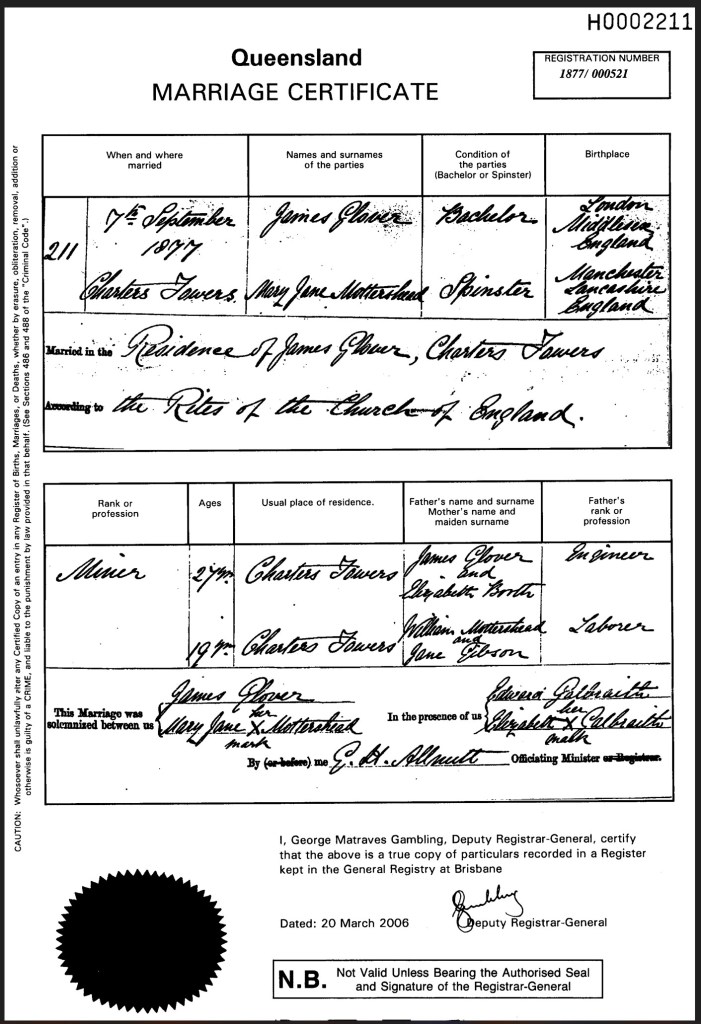 H0002211
Queensland
MARRIAGE CERTIFICATE
REGISTRATION NUMBER
1877/ 000521
CAUTION: Whosoever shall unlawfully alter any Certified Copy of an entry in any Register of Births, Marriages, or Deaths, whether by erasure, obliteration, removal, addition or
otherwise is guilty of a CRIME, and liable to the punishment by law provided in that behalf. (See Sections 486 and 488 of the "Criminal Code".)
When and where
married
Names and surnames
of the parties
Condition of
the parties
(Bachelor or Spinster)
Birthplace
211
7th September
1877
Charters Towers
James Glover
Mary Jane Mottershead
Bachelor
Spinster
London
Middlesex
England
Manchester
Lancashire
England
Married in the Residence of James Glover, Charters Towers
According to the Rites of the Church of England.
Rank or
profession
Ages
Usual place of residence.
Father's name and surname
Mother's name and
maiden surname
Father's
rank or
profession
Miner
27 yrs
Charters Towers
James Glover
and
Elizabeth Booth
Engineer
19 yrs
Charters Towers
William Mottershead
and
Jane Gibson
Laborer
This Marriage was
solemnized between us
James Glover
her
Mary Jane X Mottershead
mark
In the presence of us
Edward Galbraith
her
Elizabeth X Galbraith
mark
By (or before) me G. H. Allnutt Officiating Minister or Registrar.
I, George Matraves Gambling, Deputy Registrar-General, certify
that the above is a true copy of particulars recorded in a Register
kept in the General Registry at Brisbane
Dated: 20 March 2006
Deputy Registrar-General
N.B. Not Valid Unless Bearing the Authorised Seal
and Signature of the Registrar-General